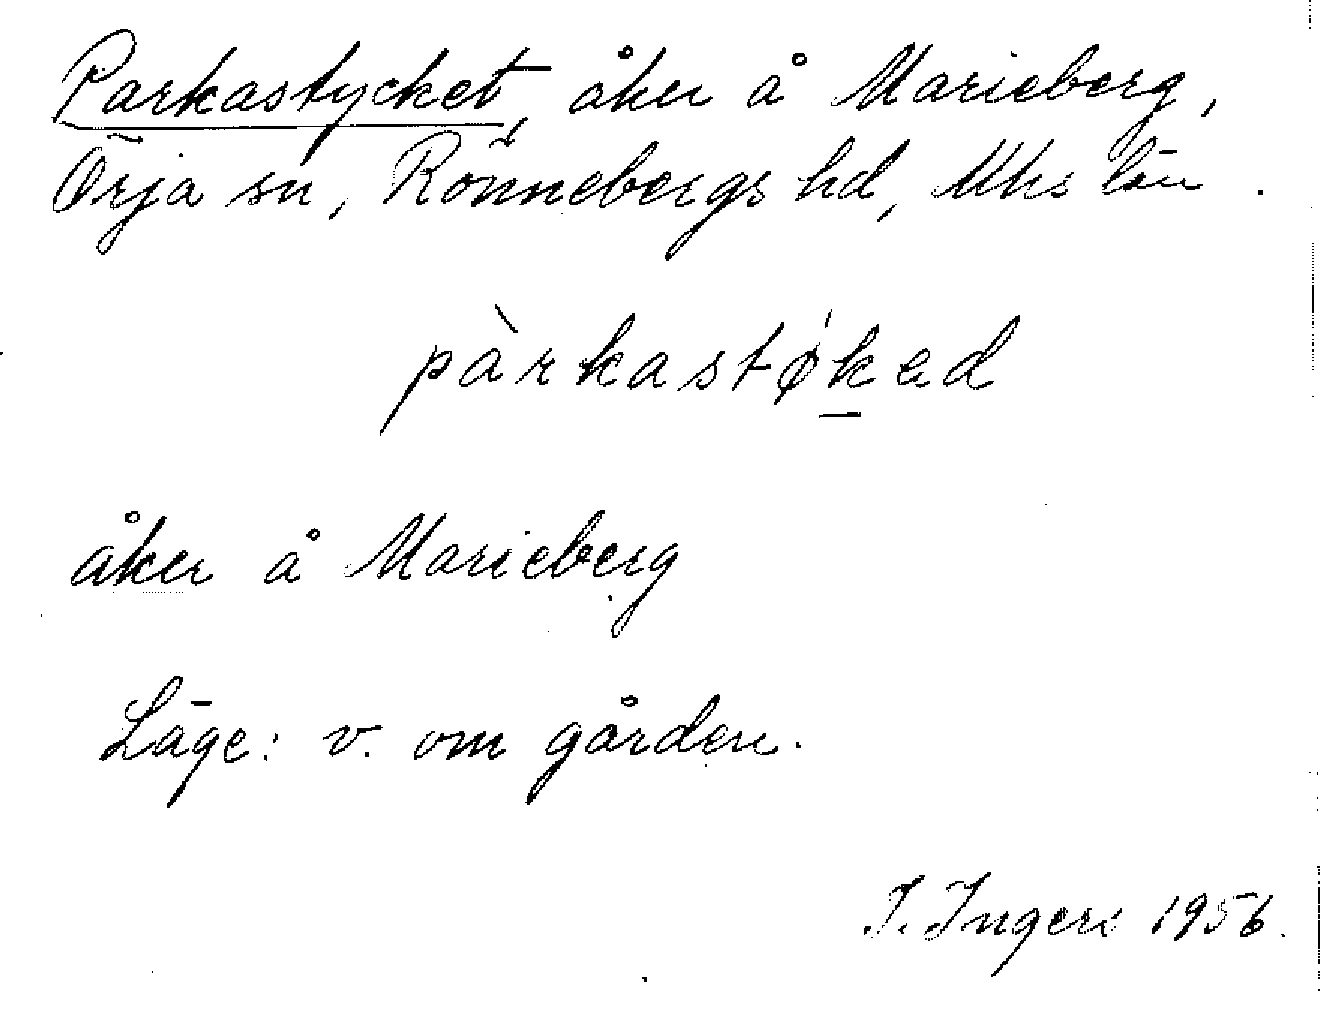 Parkastycket, åker å Marieberg,
Örja sn, Rönnebergs hd, Mhs län.
pàrkastø̀kad
åker å Marieberg
Läge: v. om gården.
I. Ingers 1956.